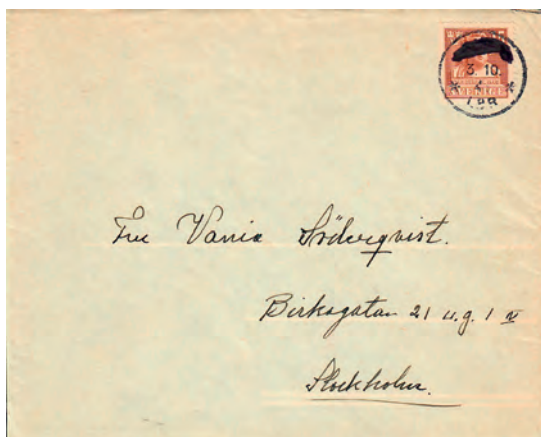 3. 10.
SVERIGE
Fru Vania Söderqvist.
Birkagatan 21 u.g. 1 v
Stockholm.